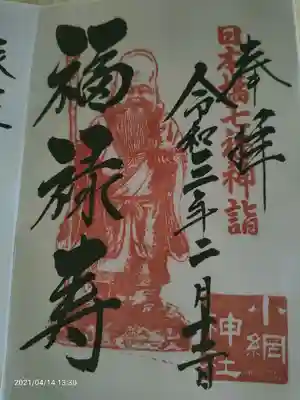 奉拝
日本橋七福神詣
令和三年二月十一日
福禄寿
小網
神社
2021/04/14 13:39